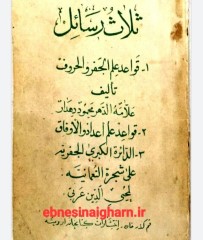 ثلاث رسائل
١- قواعد علم الجفر والحروف
تأليف
علامة الدهر محمود دهدار
٢- قواعد علم اعداد والأوفاق
٣- الدائرة الكبرى الجفرية
على شجرة النعمانية
لمحيي الدين عربي
ebnesinaigharn.ir